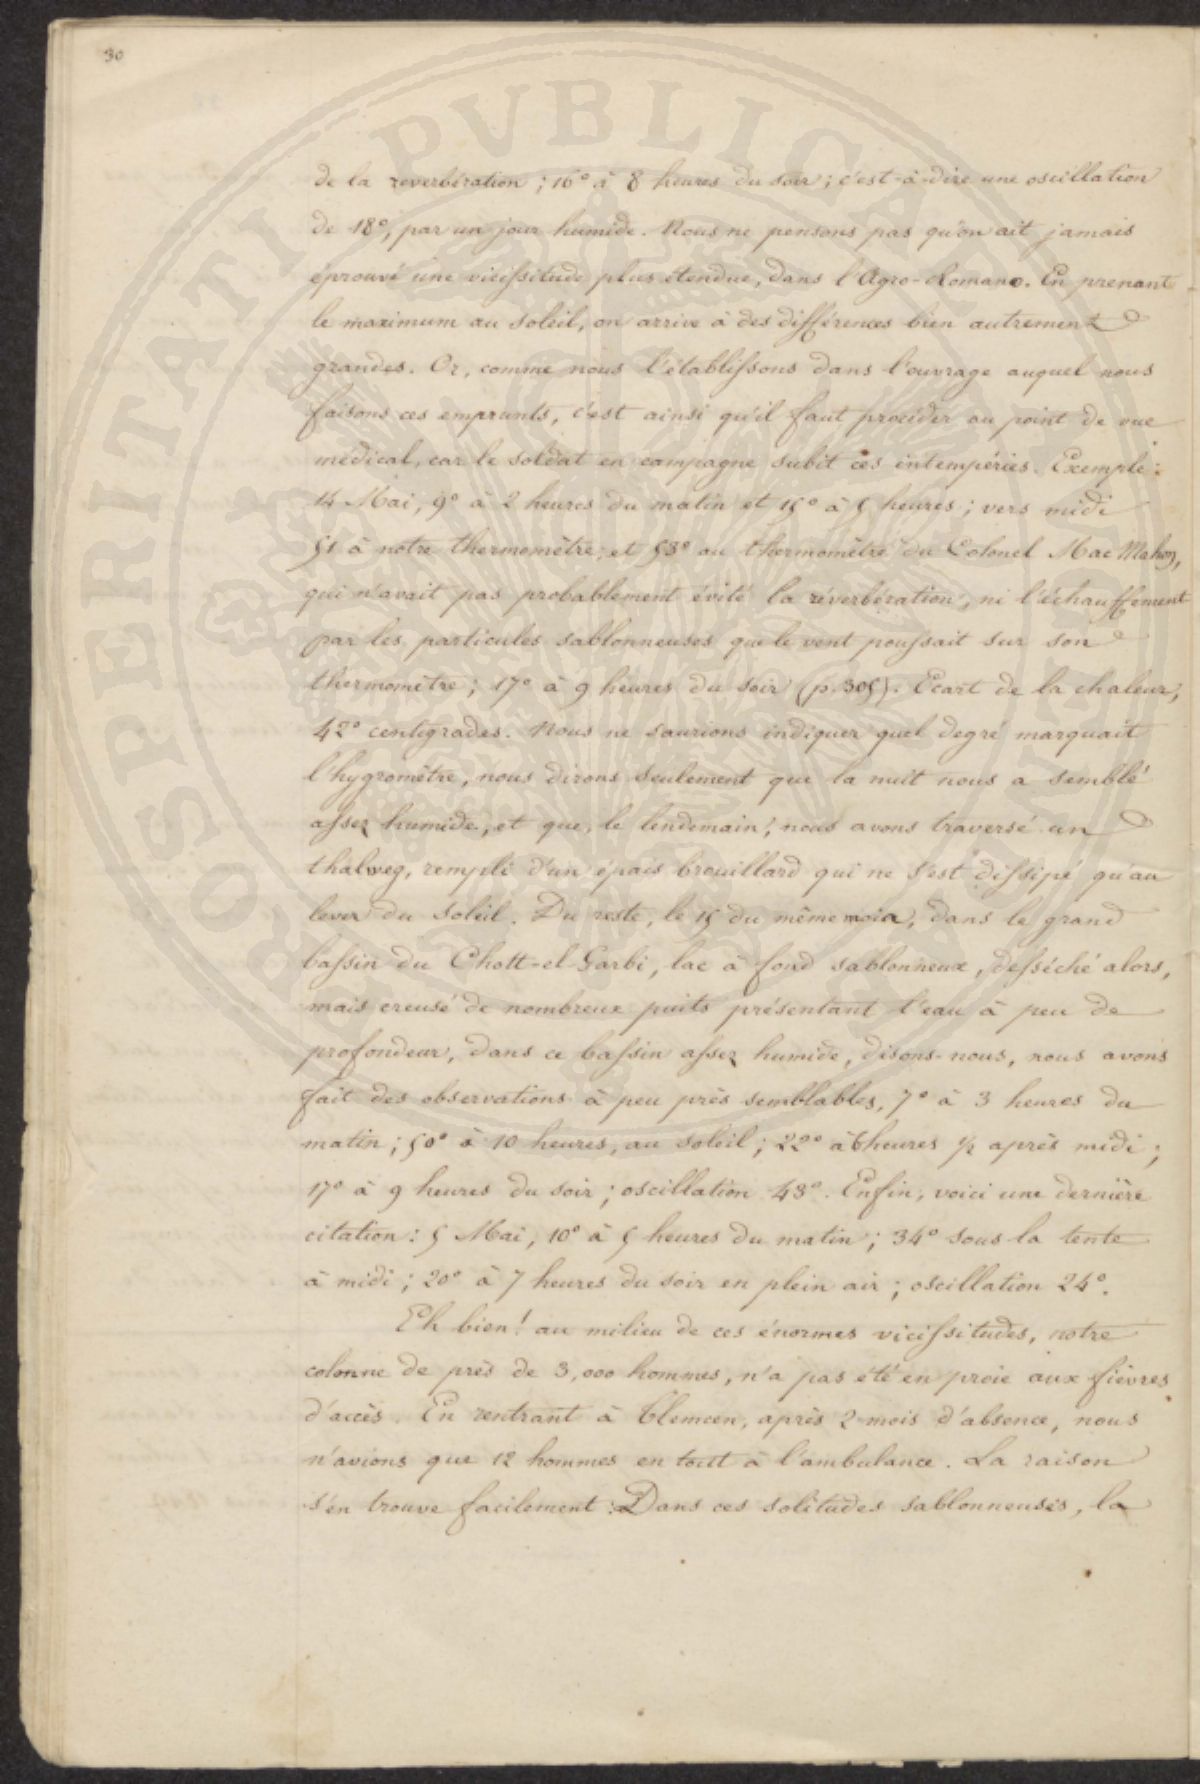 30
de la reverbération ; 16° à 8 heures du soir ; c'est-à-dire une oscillation
de 18°, par un jour humide. Nous ne pensons pas qu'on ait jamais
éprouvé une vicissitude plus étendue, dans l'Agro-Romano. En prenant
le maximum au soleil, on arrive à des différences bien autrement
grandes. Or, comme nous l'établissons dans l'ouvrage auquel nous
faisons ces emprunts, c'est ainsi qu'il faut procéder au point de vue
médical, car le soldat en campagne subit ces intempéries. Exemple :
14 Mai, 9° à 2 heures du matin et 15° à 5 heures ; vers midi
51 à notre thermomètre, et 58° au thermomètre du Colonel Mac Mahon,
qui n'avait pas probablement évité la réverbération, ni l'échauffement
par les particules sablonneuses que le vent poussait sur son
thermomètre ; 17° à 9 heures du soir (p. 305). Ecart de la chaleur,
42° centigrades. Nous ne saurions indiquer quel degré marquait
l'hygromètre, nous dirons seulement que la nuit nous a semblé
assez humide, et que, le lendemain, nous avons traversé un
thalweg, rempli d'un épais brouillard qui ne s'est dissipé qu'au
lever du soleil. Du reste, le 15 du même mois, dans le grand
bassin du Chott-el-Garbi, lac à fond sablonneux, desséché alors,
mais creusé de nombreux puits présentant l'eau à peu de
profondeur, dans ce bassin assez humide, disons-nous, nous avons
fait des observations à peu près semblables, 7° à 3 heures du
matin ; 50° à 10 heures, au soleil ; 22° à 6 heures ½ après midi ;
17° à 9 heures du soir ; oscillation 43°. Enfin, voici une dernière
citation : 5 Mai, 10° à 5 heures du matin ; 34° sous la tente
à midi ; 20° à 7 heures du soir en plein air ; oscillation 24°.
Eh bien ! au milieu de ces énormes vicissitudes, notre
colonne de près de 3,000 hommes, n'a pas été en proie aux fièvres
d'accès. En rentrant à Tlemcen, après 2 mois d'absence, nous
n'avions que 12 hommes en tout à l'ambulance. La raison
s'en trouve facilement : Dans ces solitudes sablonneuses, la